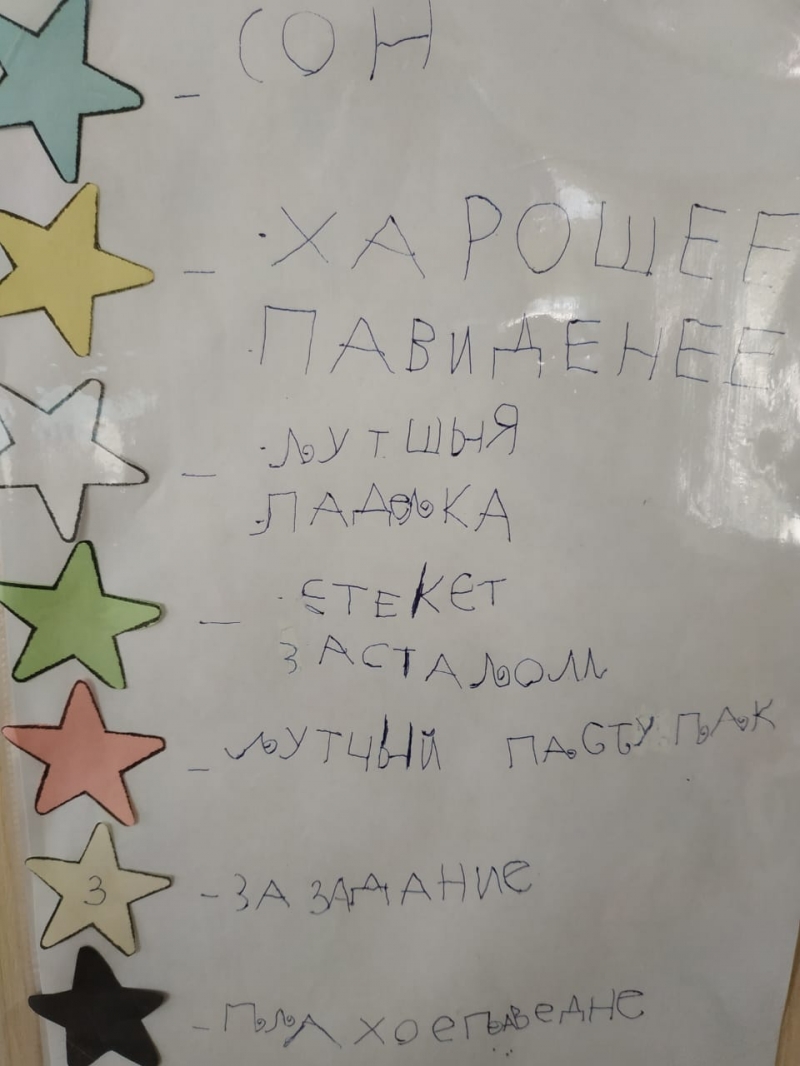 - СОН
- ХАРОШЕЕ
ПАВИДЕНЕЕ
- ЛУТШЫЯ
- ЕТЕКЕТ
ЗАСТАЛОМ
- ЛУТЧЫЙ ПАСТУПЛАК
3 - ЗА ЗАДАНИЕ
- ПЛАХОЕ ПАВЕДНЕ